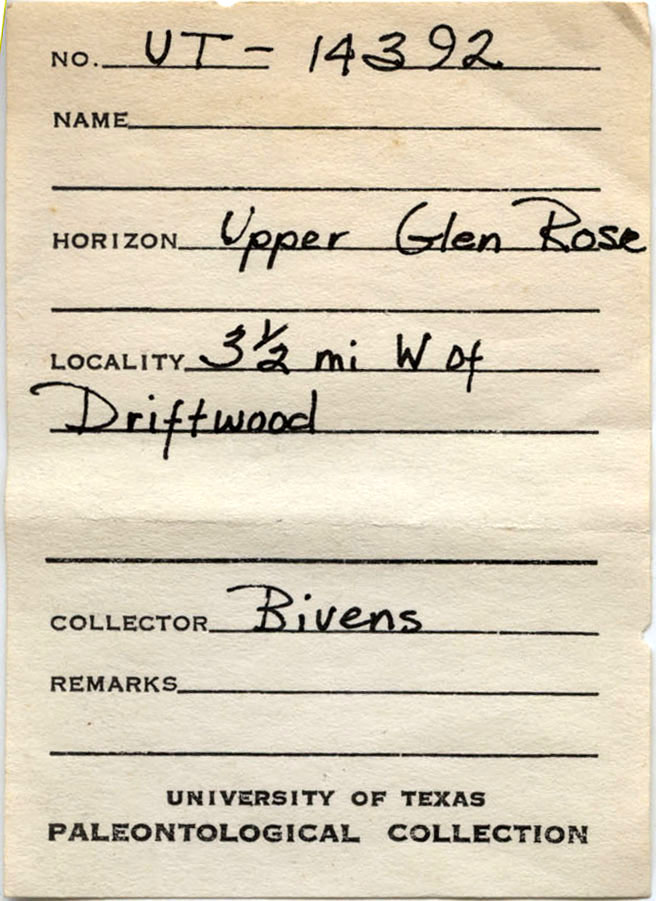 NO. UT - 14392
NAME
HORIZON Upper Glen Rose
LOCALITY 3 1/2 mi W of
Driftwood
COLLECTOR Bivens
REMARKS
UNIVERSITY OF TEXAS
PALEONTOLOGICAL COLLECTION